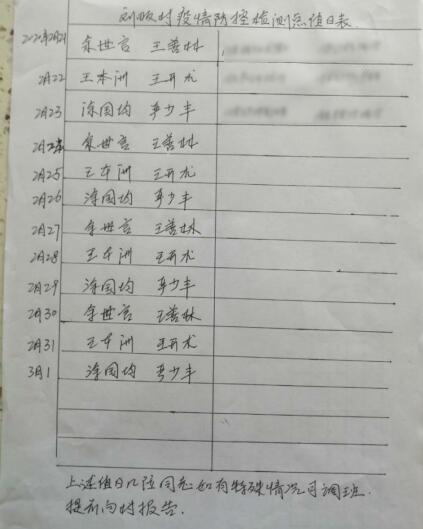 刘畈村疫情防控检测点值日表
2020年2月21 余世言 王善林
2月22 王本洲 王开龙
2月23 涂国均 李少丰
2月24 余世言 王善林
2月25 王本洲 王开龙
2月26 涂国均 李少丰
2月27 余世言 王善林
2月28 王本洲 王开龙
2月29 涂国均 李少丰
2月30 余世言 王善林
2月31 王本洲 王开龙
3月1 涂国均 李少丰
上述值日几位同志如有特殊情况可调班.
提前向村报告.